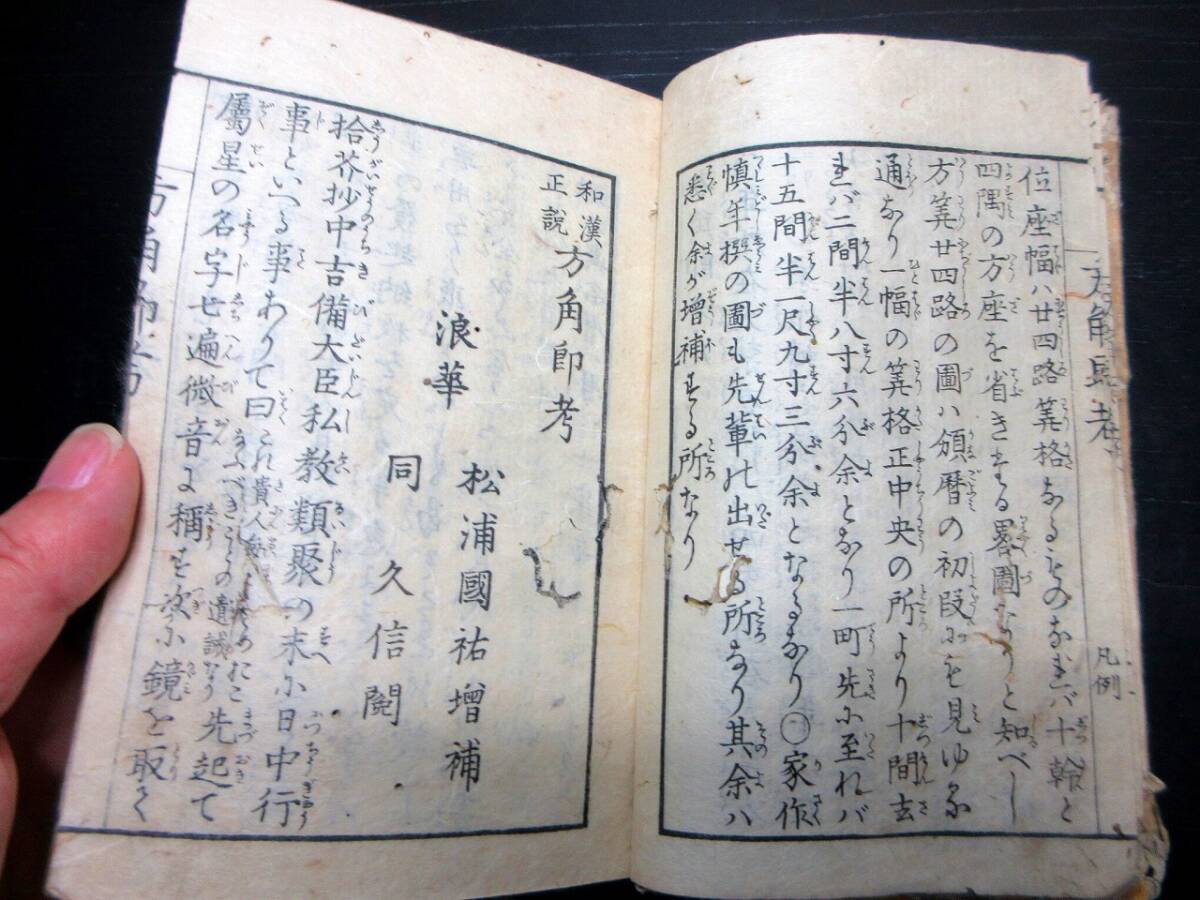 位座幅ハ廿四路筭格なるものなれバ十幹と
四隅の方座を省きたる畧圖なりと知べし
方筭廿四路の圖ハ頒暦の初段にも見ゆる
通なり一幅の筭格正中央の所より十間去
れバ二間半八寸六分余となり一町先に至れバ
十五間半一尺九寸三分余となるなり〇家作
慎年撰の圖も先輩の出せる所なり其余ハ
悉く余が增補する所なり
凡例
和漢
正説
方角即考
浪華
松浦國祐增補
同
久信閲
拾芥抄中吉備大臣私教類聚の末に日中行
事といへる事ありて曰これ貴人
なふべきことの遺誡なり先起て
屬星の名字七遍微音に稱す次に鏡を取て